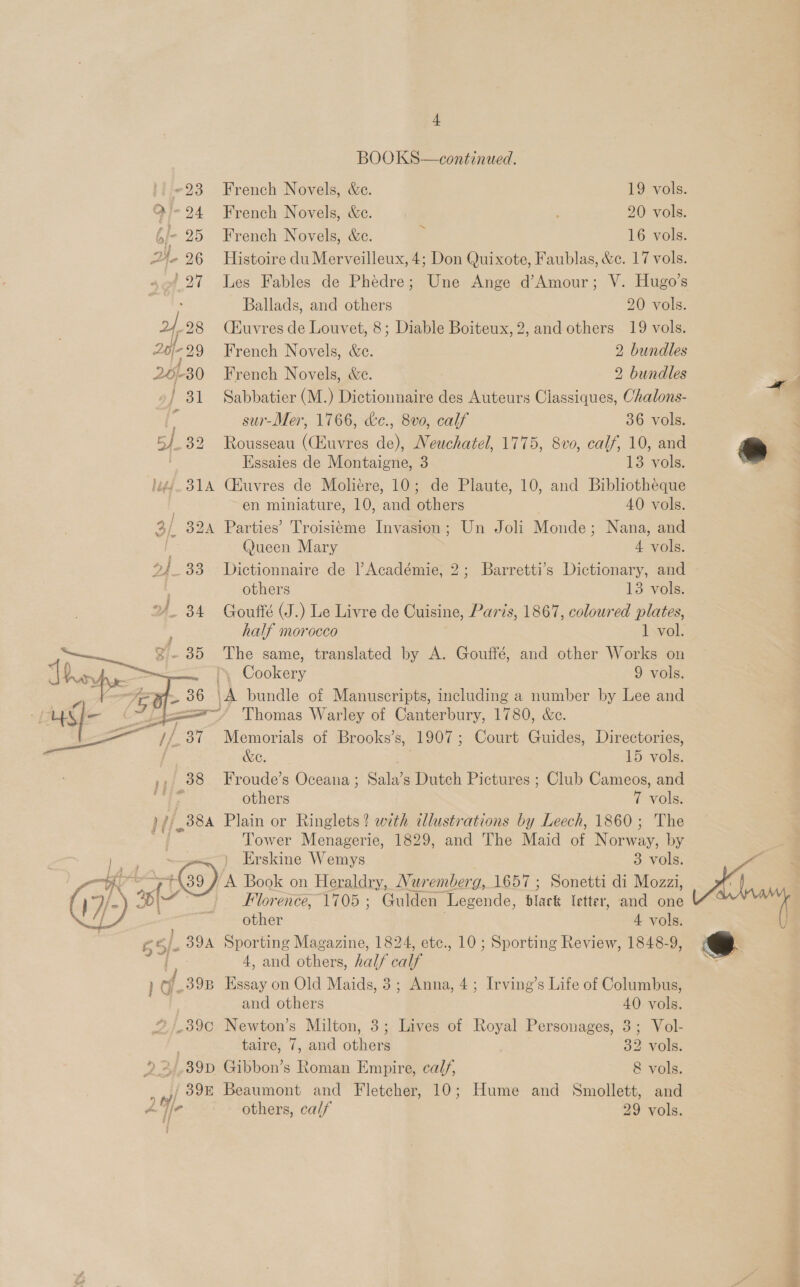 4
BOOKS—continued.
23 French Novels, &c. 19 vols.
24 French Novels, &c. 20 vols.
6/- 25 French Novels, &c. 16 vols.
26 Histoire du Merveilleux, 4; Don Quixote, Faublas, &c. 17 vols.
27 Les Fables de Phèdre; Une Ange d'Amour; V. Hugo's
Ballads, and others 20 vols.
28 Œuvres de Louvet, 8; Diable Boiteux, 2, and others 19 vols.
20/- 29 French Novels, &c. 2 bundles
20/- 30 French Novels, &c. 2 bundles
31 Sabbatier (M.) Dictionnaire des Auteurs Classiques, Chalons-
sur-Mer, 1766, &c., 8vo, calf 36 vols.
5/- 32 Rousseau (Œuvres de), Neuchatel, 1775, 8vo, calf, 10, and
Essaies de Montaigne, 3 13 vols.
31A Œuvres de Molière, 10; de Plaute, 10, and Bibliothèque
en miniature, 10, and others 40 vols.
3/- 32A Parties' Troisième Invasion; Un Joli Monde; Nana, and
Queen Mary 4 vols.
33 Dictionnaire de l'Académie, 2; Barretti's Dictionary, and
others 13 vols.
34 Gouffé (J.) Le Livre de Cuisine, Paris, 1867, coloured plates,
half morocco 1 vol.
35 The same, translated by A. Gouffé, and other Works on
Cookery 9 vols.
36 A bundle of Manuscripts, including a number by Lee and
Thomas Warley of Canterbury, 1780, &c.
37 Memorials of Brooks's, 1907; Court Guides, Directories,
&c. 15 vols.
38 Froude's Oceana; Sala's Dutch Pictures; Club Cameos, and
others 7 vols.
38A Plain or Ringlets? with illustrations by Leech, 1860; The
Tower Menagerie, 1829, and The Maid of Norway, by
Erskine Wemys 3 vols.
39 A Book on Heraldry, Nuremberg, 1657; Sonetti di Mozzi,
(17/-) Florence, 1705; Gulden Legende, black letter, and one
other 4 vols.
39A Sporting Magazine, 1824, etc., 10; Sporting Review, 1848-9,
4, and others, half calf
39B Essay on Old Maids, 3; Anna, 4; Irving's Life of Columbus,
and others 40 vols.
39C Newton's Milton, 3; Lives of Royal Personages, 3; Vol-
taire, 7, and others 32 vols.
39D Gibbon's Roman Empire, calf, 8 vols.
39E Beaumont and Fletcher, 10; Hume and Smollett, and
others, calf 29 vols.